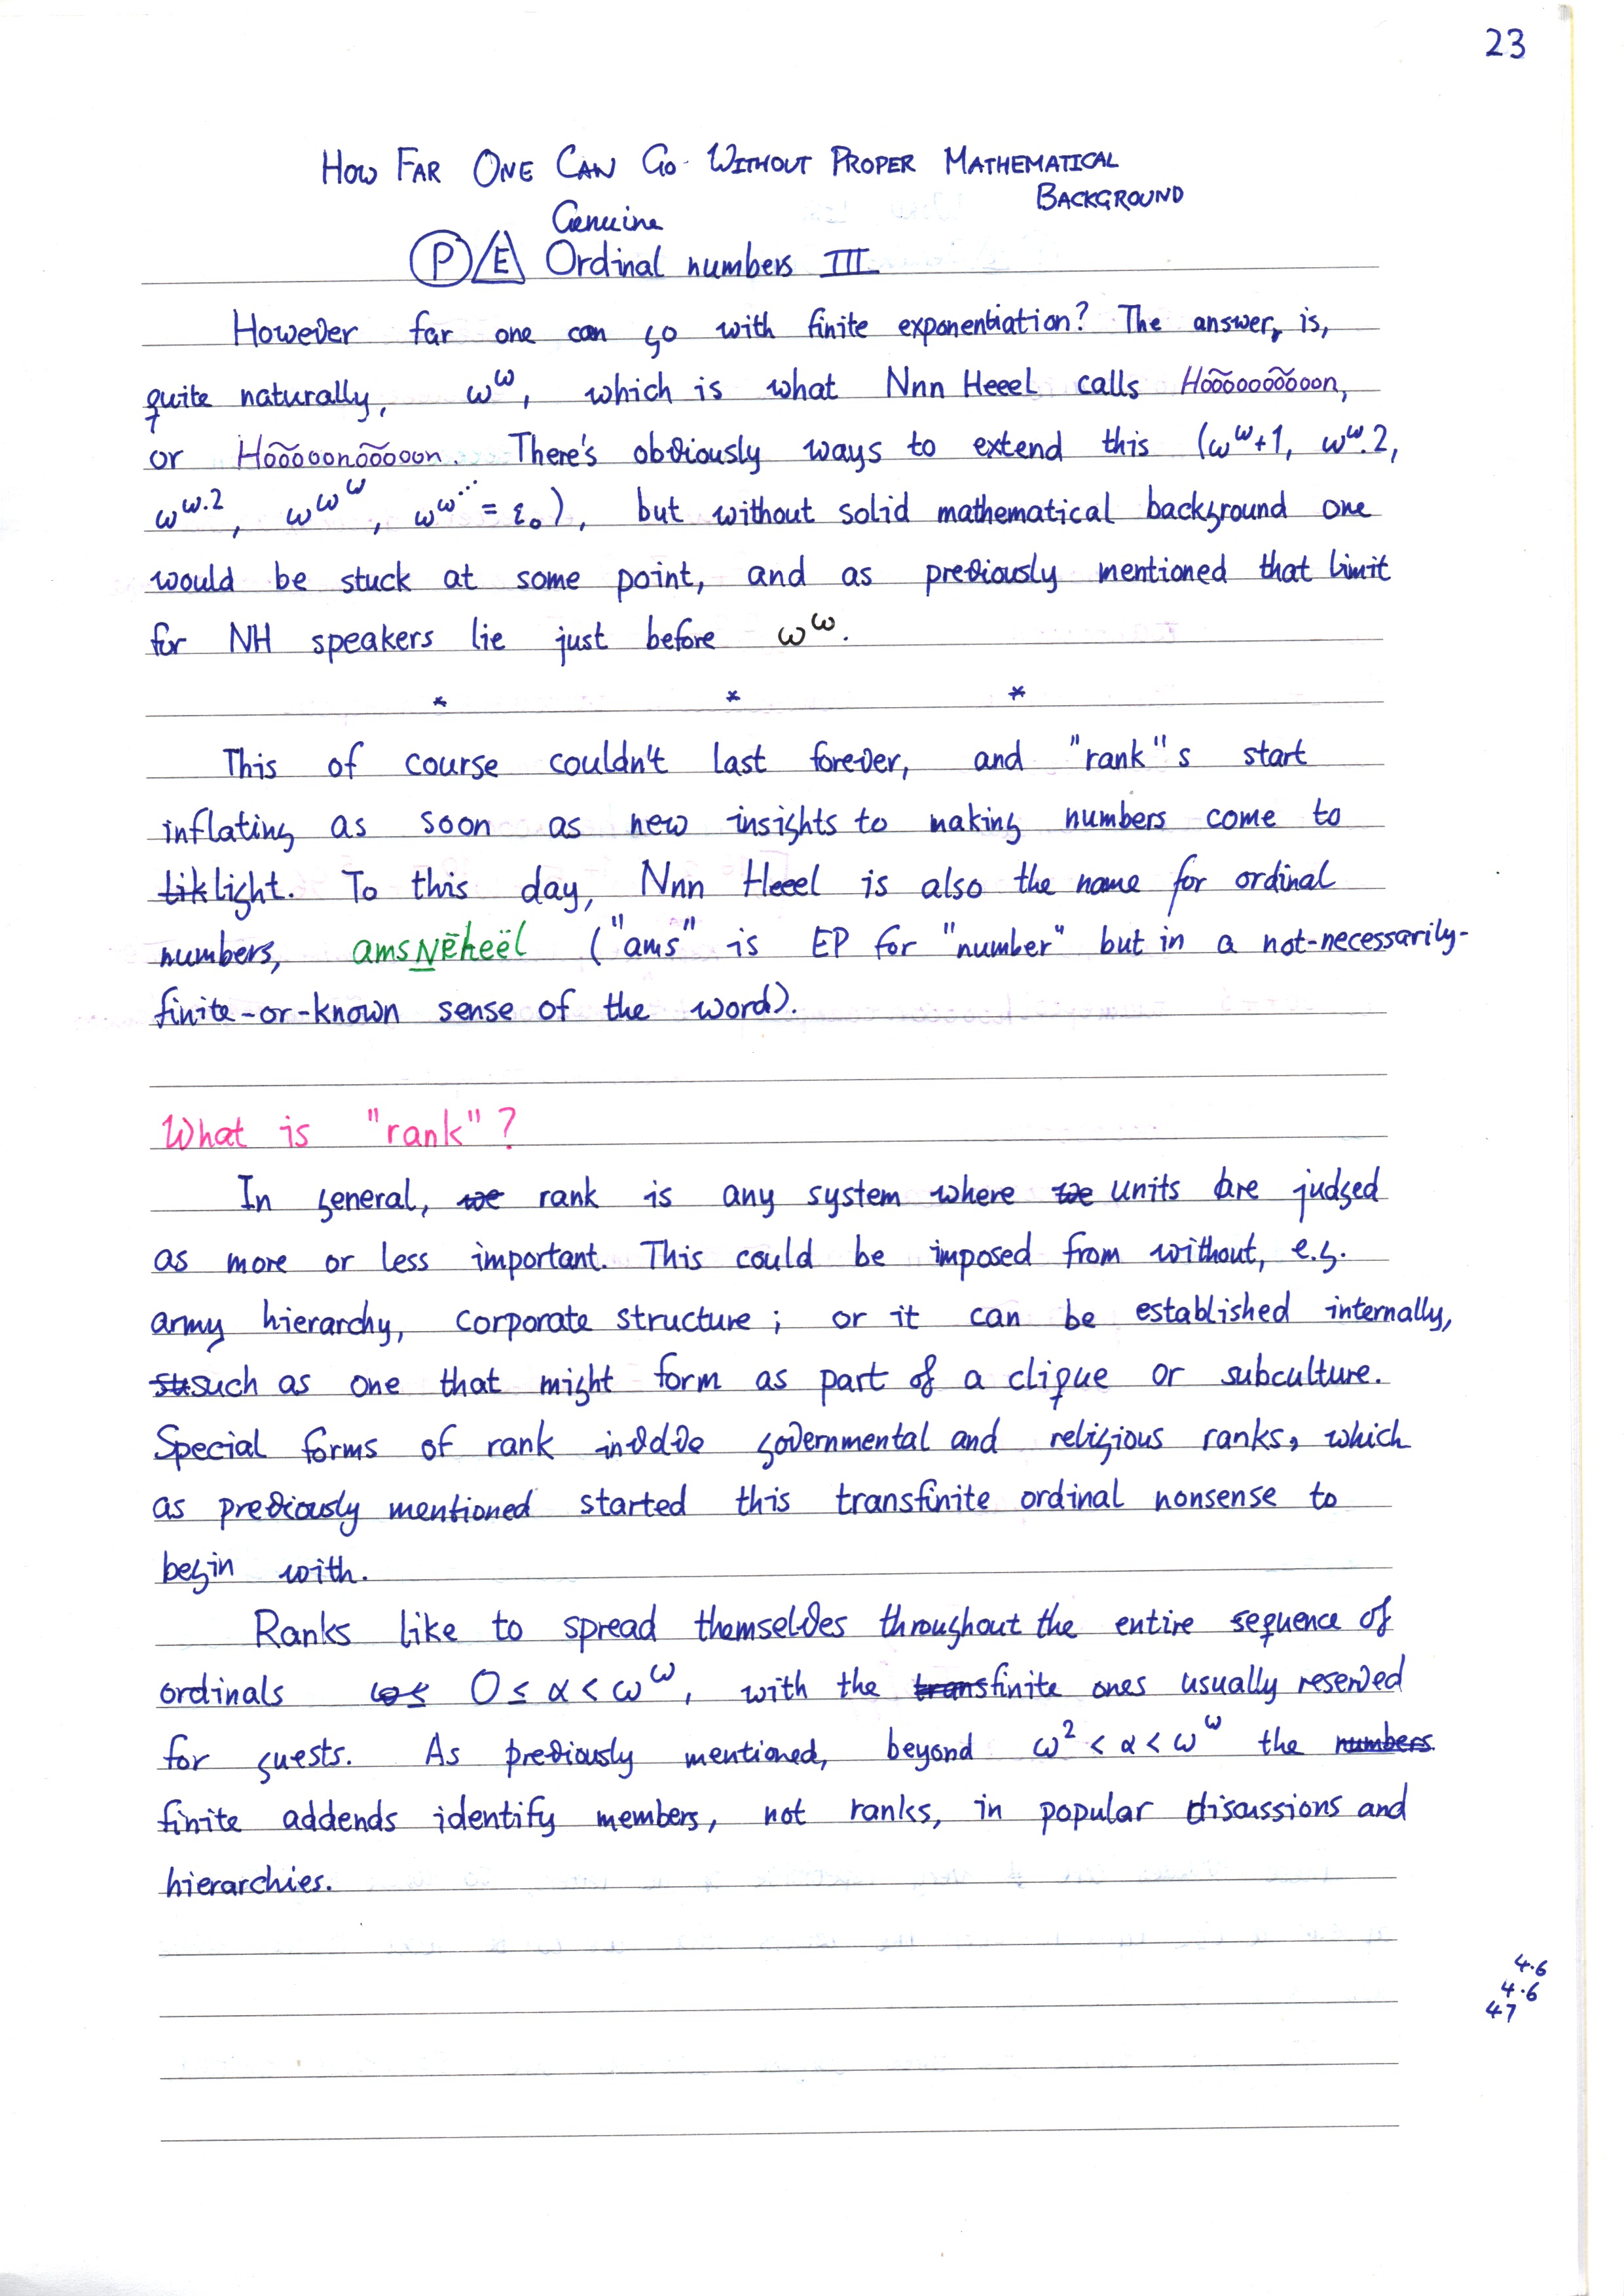 23
HOW FAR ONE CAN GO WITHOUT PROPER MATHEMATICAL
BACKGROUND
Genuine
P/E Ordinal numbers III
However far one can go with finite exponentiation? The answer, is,
quite naturally, ω^ω, which is what Nnn Heeel calls
or There's obviously ways to extend this (ω^ω+1, ω^ω.2,
ω^ω.2, ω^ω^ω, ω^ω^⋰ = ε₀), but without solid mathematical background one
would be stuck at some point, and as previously mentioned that limit
for NH speakers lie just before ω^ω.
* * *
This of course couldn't last forever, and "rank"s start
inflating as soon as new insights to making numbers come to
light. To this day, Nnn Heeel is also the name for ordinal
numbers, amsNĒheël ("ams" is EP for "number" but in a not-necessarily-
finite-or-known sense of the word).
What is "rank"?
In general, rank is any system where units are judged
as more or less important. This could be imposed from without, e.g.
army hierarchy, corporate structure; or it can be established internally,
such as one that might form as part of a clique or subculture.
Special forms of rank governmental and religious ranks, which
as previously mentioned started this transfinite ordinal nonsense to
begin with.
Ranks like to spread themselves throughout the entire sequence of
ordinals 0 ≤ α < ω^ω, with the finite ones usually reserved
for guests. As previously mentioned, beyond ω² < α < ω^ω the
finite addends identify members, not ranks, in popular discussions and
hierarchies.
4.6
4.6
47